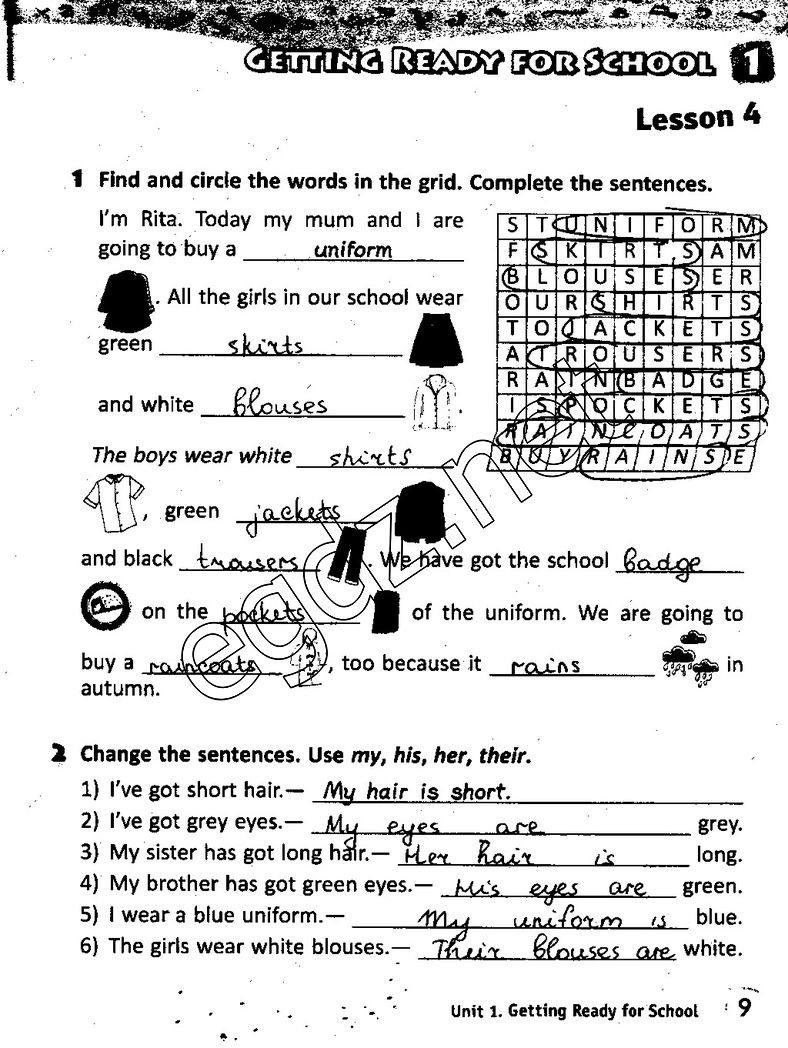 GETTING READY FOR SCHOOL 1
Lesson 4
1 Find and circle the words in the grid. Complete the sentences.
I'm Rita. Today my mum and I are
going to buy a uniform
. All the girls in our school wear
green skirts
and white blouses .
The boys wear white shirts
, green jackets
and black trousers . We have got the school badge
on the pockets of the uniform. We are going to
buy a raincoats , too because it rains in
autumn.
S T U N I F O R M
F S K I R T S A M
B L O U S E S E R
O U R S H I R T S
T O J A C K E T S
A T R O U S E R S
R A I N B A D G E
I S P O C K E T S
R A I N C O A T S
B U Y R A I N S E
egdz.net
2 Change the sentences. Use my, his, her, their.
1) I've got short hair.— My hair is short.
2) I've got grey eyes.— My eyes are grey.
3) My sister has got long hair.— Her hair is long.
4) My brother has got green eyes.— His eyes are green.
5) I wear a blue uniform.— My uniform is blue.
6) The girls wear white blouses.— Their blouses are white.
Unit 1. Getting Ready for School 9